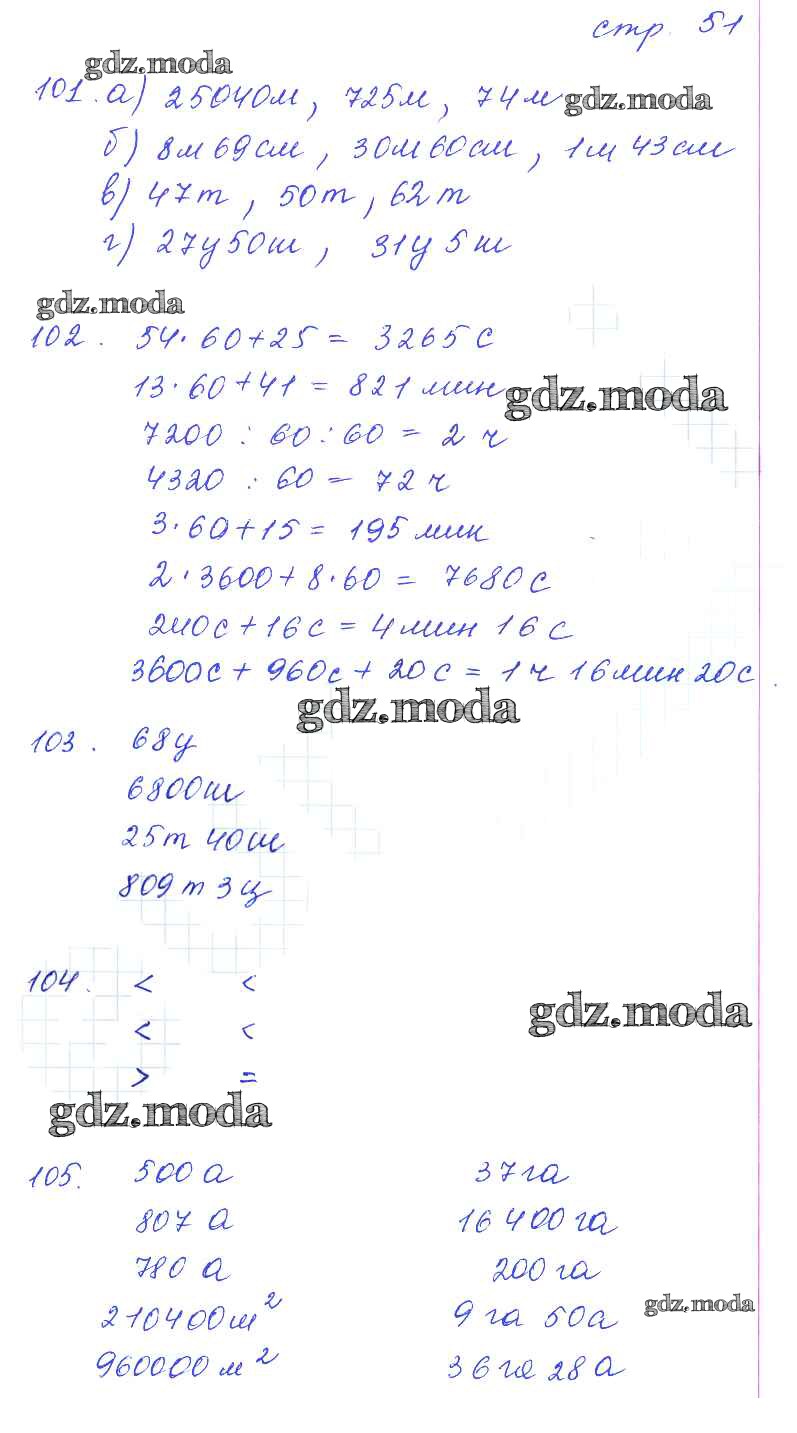 стр. 51
gdz.moda
101. а) 25040м, 725м, 74м gdz.moda
б) 8м 69см, 30м 60см, 1м 43см
в) 47т, 50т, 62т
г) 27ц 50ш, 31ц 5ш
gdz.moda
102. 54·60+25 = 3265 с
13·60+41 = 821 мин gdz.moda
7200 : 60 : 60 = 2 ч
4320 : 60 = 72 ч
3·60+15 = 195 мин
2·3600+8·60 = 7680 с
240с + 16с = 4 мин 16 с
3600с + 960с + 20 с = 1 ч 16 мин 20с
gdz.moda
103. 68ц
6800ш
25т 40ш
809 т 3 ц
104. < <
gdz.moda
< <
> =
gdz.moda
105. 500 а 37 га
807 а 16 400 га
780 а 200 га
210400 м² 9 га 50а gdz.moda
960000 м² 36 га 28 а